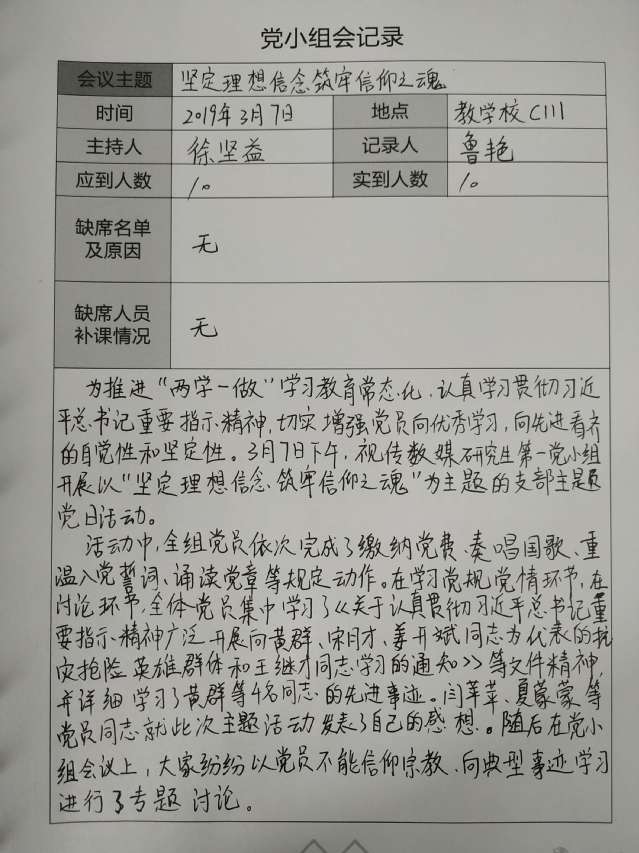 党小组会记录
会议主题 坚定理想信念筑牢信仰之魂
时间 2019年3月7日 地点 教学校C111
主持人 徐坚益 记录人 鲁艳
应到人数 10 实到人数 10
缺席名单
及原因 无
缺席人员
补课情况 无
为推进“两学一做”学习教育常态化,认真学习贯彻习近
平总书记重要指示精神,切实增强党员向优秀学习,向先进看齐
的自觉性和坚定性。3月7日下午,视传数媒研究生第一党小组
开展以“坚定理想信念筑牢信仰之魂”为主题的支部主题
党日活动。
活动中,全组党员依次完成了缴纳党费、奏唱国歌、重
温入党誓词、诵读党章等规定动作。在学习党规党情环节,在
讨论环节,全体党员集中学习了《关于认真贯彻习近平总书记重
要指示精神广泛开展向黄群、宋月才、姜开斌同志为代表的抗
灾抢险英雄群体和王继才同志学习的通知》等文件精神,
并详细学习了黄群等4名同志的先进事迹。闫苹苹、夏蒙蒙等
党员同志就此次主题活动发表了自己的感想。随后在党小
组会议上,大家纷纷以党员不能信仰宗教、向典型事迹学习
进行了专题讨论。